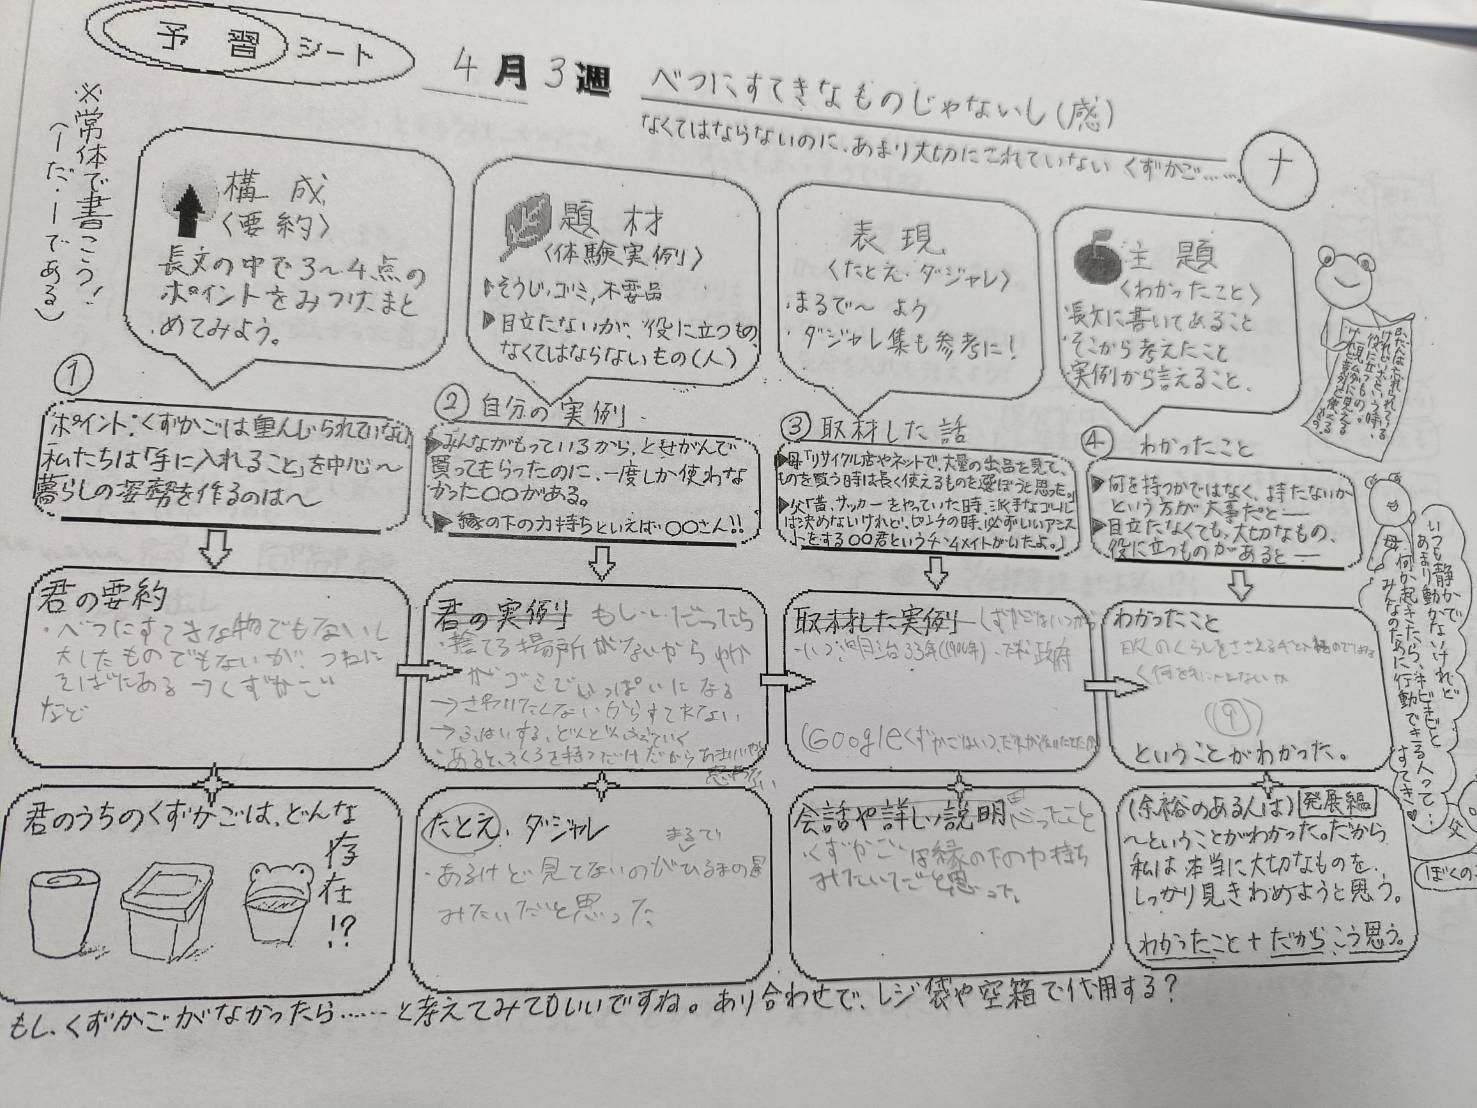 予習シート
4月3週
べつにすてきなものじゃないし(感)
なくてはならないのに、あまり大切にされていない くずかご……。
ナ
※常体で書こう!
(ーだ・ーである)
構成
〈要約〉
長文の中で3〜4点の
ポイントをみつけ、まと
めてみよう。
題材
〈体験実例〉
▶そうじ、ゴミ、不要品
▶目立たないが、役に立つもの、
なくてはならないもの(人)
表現
〈たとえ・ダジャレ〉
・まるで〜よう
・ダジャレ集も参考に!
主題
〈わかったこと〉
・長文に書いてあること
・そこから考えたこと
・実例から言えること、
①
ポイント:くずかごは重んじられていない
私たちは「手に入れること」を中心〜
暮らしの姿勢を作るのは〜
② 自分の実例
▶みんながもっているから、とせがんで
買ってもらったのに、一度しか使わな
かった〇〇がある。
▶縁の下の力持ちといえば〇〇さん!!
③ 取材した話
▶母「リサイクル店やネットで、大量の出品を見て、
ものを買う時は長く使えるものを選ぼうと思った。」
▶父「昔、サッカーをやっていた時、派手なゴール
は決めないけれど、ピンチの時、必ずいいアシス
トをする〇〇君というチームメイトがいたよ。」
④ わかったこと
▶何を持つかではなく、持たないか
という方が大事だと―
▶目立たなくても、大切なもの、
役に立つものがあると―
君の要約
・べつにすてきな物でもないし
大したものでもないが、つねに
そばにある→くずかご
など
君の実例 もしいしだったら
・捨てる場所がないから
がゴミでいっぱいになる
→さわりたくないからすてれない
→ふはいする、どんどん
・あると、ふくろを持つだけだから
取材した実例 くずかごはいつから
・いつ:明治33年(1900年)
政府
(Googleくずかごはいつ
わかったこと
民のくらしをささえる
く何を
ということがわかった。
君のうちのくずかごは、どんな
存在!?
たとえ・ダジャレ
まるで
・あるけど見てないのがひるまの星
みたいだと思った
会話や詳しい説明 思ったこと
・くずかごは縁の下の力持ち
みたいだと思った。
(余裕のある人は) 発展編
〜ということがわかった。だから
私は本当に大切なものを、
しっかり見きわめようと思う。
わかったこと+だからこう思う。
いつも静かで
あまり動かないけれど
何か起きたら、キビキビと
みんなのために行動できる人って…
すてき♥
母
父
ぼくの
もし、くずかごがなかったら……と考えてみてもいいですね。あり合わせで、レジ袋や空箱で代用する?